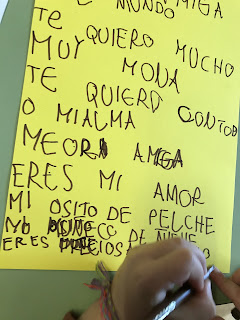 MUNDO MIGA
TE QUIERO MUCHO
MUY MONA
TE QUIERO CONTODO
O MIALMA
MEORA AMIGA
ERES MI AMOR
MI OSITO DE PELCHE
MUÑECO DE NIEVE
ERES PRECIOS